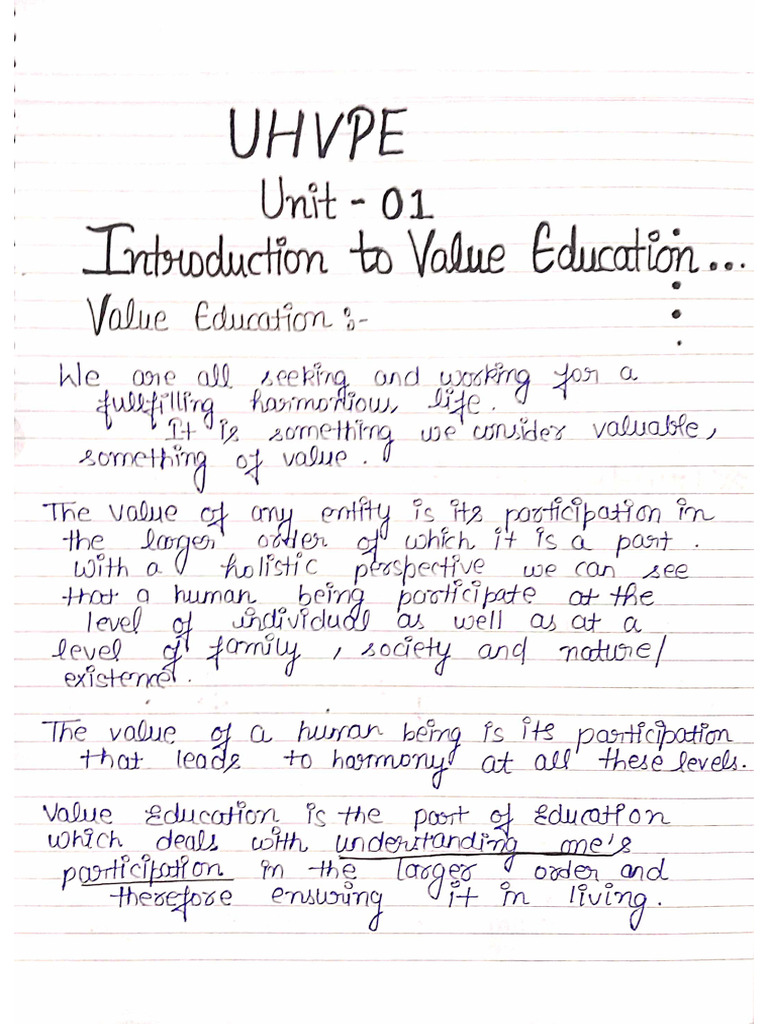 UHVPE
Unit - 01
Introduction to Value Education...
Value Education :-
We are all seeking and working for a
fullfilling harmoniou, life.
It is something we consider valuable,
something of value.
The value of any entity is its participation in
the larger order of which it is a part.
with a holistic perspective we can see
that a human being participate at the
level of individual as well as at a
level of family, society and nature/
existence.
The value of a human being is its participation
that leads to harmony at all these levels.
Value Education is the part of Education
which deals with understanding one's
participation in the larger order and
therefore ensuring it in living.